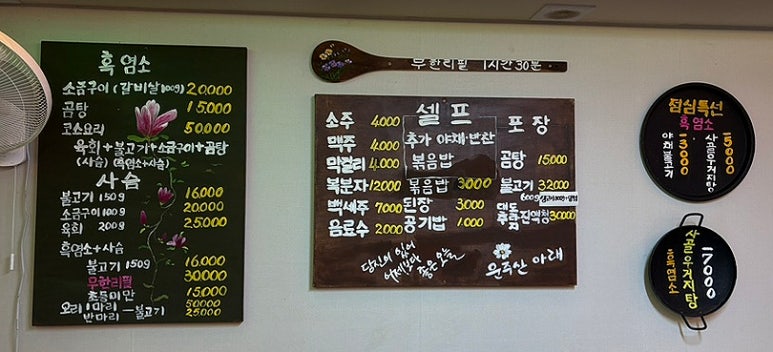 흑염소
소금구이(갈비살100g) 20,000
곰탕 15,000
코스요리 50000
육회+불고기+소금구이+곰탕
(사슴) (흑염소+사슴)
사슴
불고기 150g 16,000
소금구이 100g 20,000
육회 200g 25,000
흑염소+사슴
불고기 150g 16,000
무한리필 30000
초등미만 15,000
오리 1마리 50000
반마리 불고기 25000
무한리필 1시간 30분
셀프
추가 야채·반찬
볶음밥
소주 4.000
맥주 4.000
막걸리 4.000
복분자 12000
백세주 7000
음료수 2000
볶음밥 3000
된장 3000
공기밥 1.000
포장
곰탕 15000
불고기 32000
600g
진액청 30000
당신이 있어
어제보다 좋은 오늘
운주산 아래
점심특선
흑염소
사골우거지탕 -5000
야채불고기 -3000
사골우거지탕 -7000
흑염소